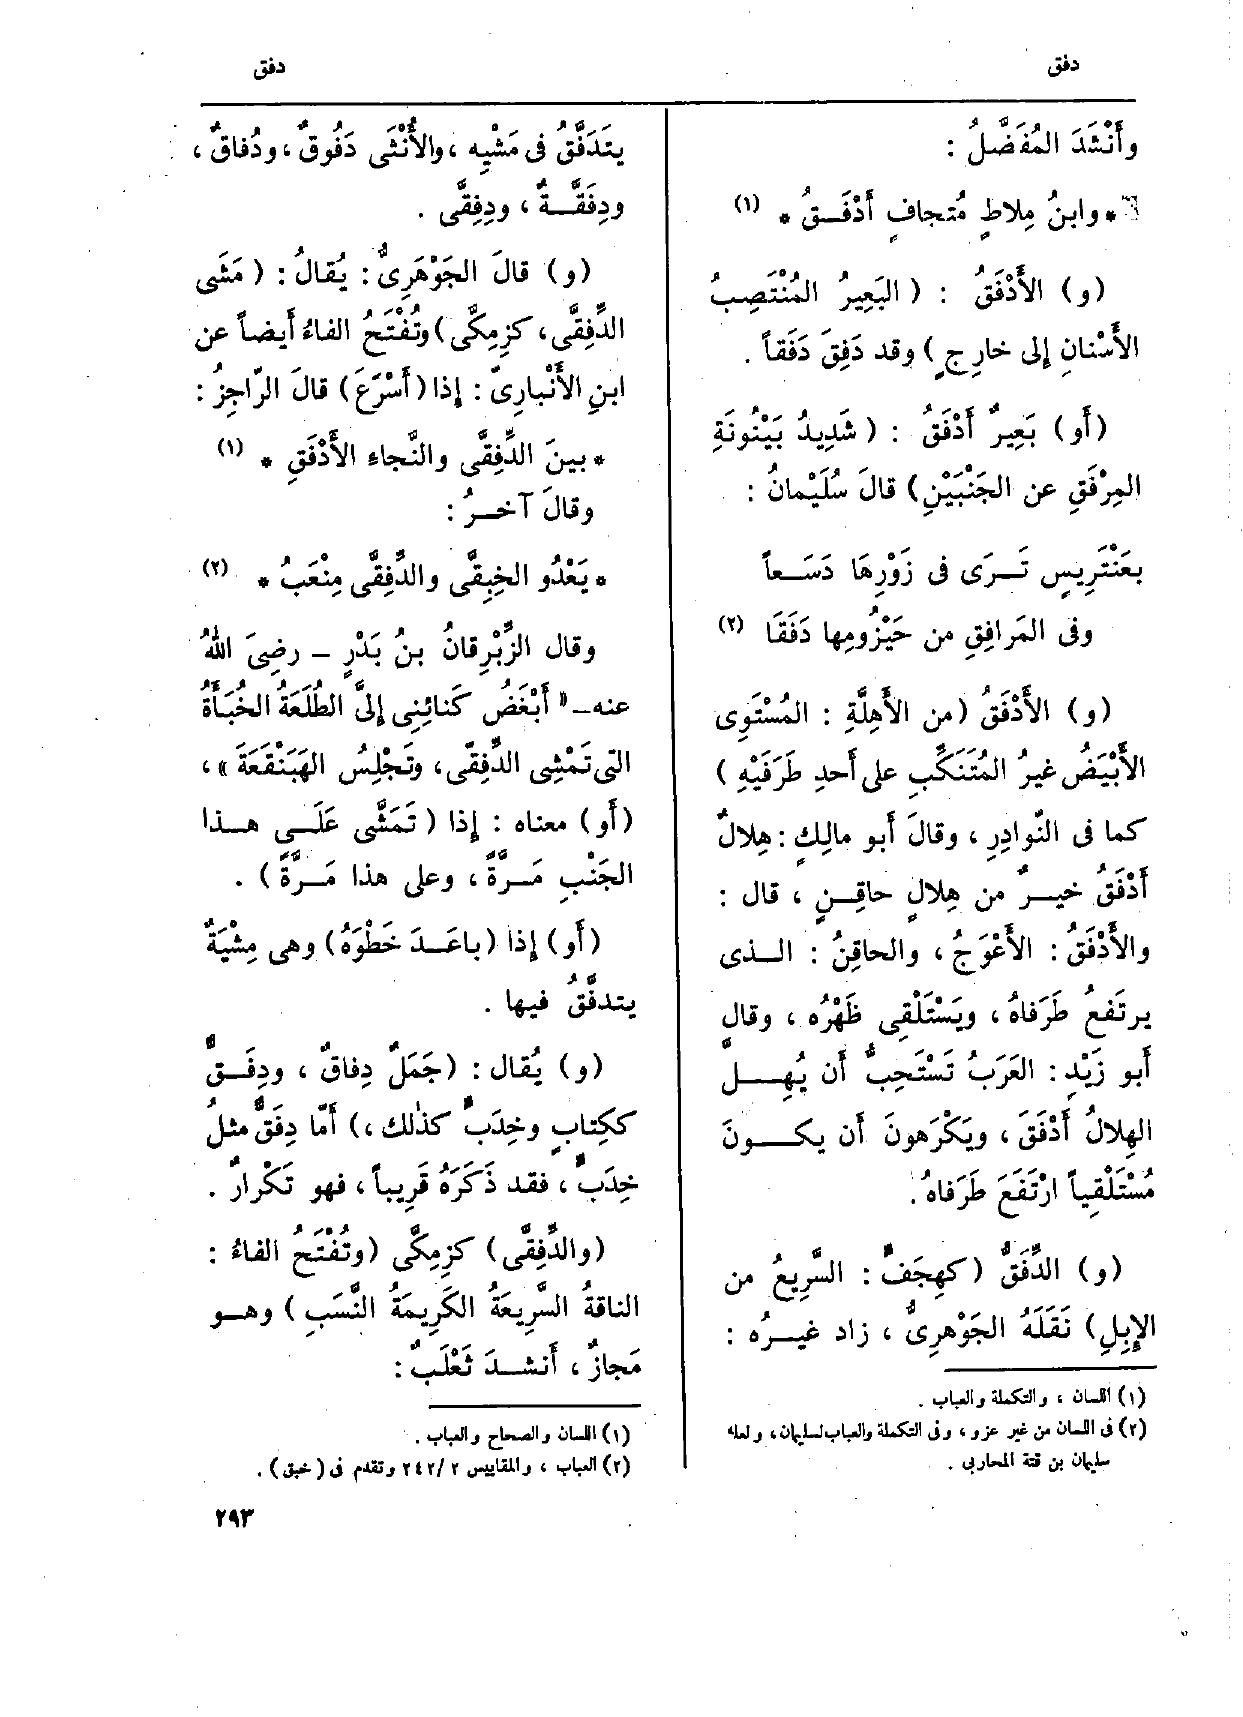 دفق
دفق
وأَنْشَدَ المُفَضَّلُ :
* وابنُ مِلاطٍ مُتجافٍ أَدْفَـقُ * (١)
(و) الأَدْفَقُ : ( البَعِيرُ المُنْتَصِبُ
الأَسْنانِ إلى خارِجٍ ) وقد دَفِقَ دَفَقاً .
(أَو) بَعِيرٌ أَدْفَقُ : ( شَدِيدُ بَيْنُونَةِ
المِرْفَقِ عن الجَنْبَيْنِ) قالَ سُلَيْمانُ :
بعَنْتَرِيسٍ تَـرَى فى زَوْرِهَا دَسَـعاً
وفى المَرافِقِ من حَيْزُومِها دَفَقَا (٢)
(و) الأَدْفَقُ (من الأَهِلَّةِ : المُسْتَوِى
الأَبْيَضُ غيرُ المُتَنَكِّبِ على أَحدِ طَرَفَيْهِ )
كما فى النَّوادِرِ ، وقالَ أَبو مالِكٍ : هِلالٌ
أَدْفَقُ خيـرٌ من هِلالٍ حاقِـنٍ ، قال :
والأَدْفَقُ : الأَعْوَجُ ، والحاقِنُ : الـذى
يرتَفعُ طَرَفاهُ ، ويَسْتَلْقِى ظَهْرُه ، وقال
أَبو زَيْدٍ : العَرَبُ تَسْتَحِبُّ أَن يُهِـلَّ
الهِلالُ أَدْفَقَ ، ويَكْرَهونَ أَن يكـونَ
مُسْتَلْقِياً ارْتَفَعَ طَرَفاهُ .
(و) الدِّفَقُّ (كهِجَفٍّ : السَّرِيعُ من
الإِبِلِ) نَقَلَهُ الجَوْهَرِىُّ ، زاد غيـرُه :
(١) اللسان ، والتكملة والعباب .
(٢) فى اللسان من غير عزو ، وفى التكملة والعباب لسليمان ، ولعله
سليمان بن قتة المحاربى .
يتَدَفَّقُ فى مَشْيِه ، والأُنْثَى دَفُوقٌ ، ودُفاقٌ ،
ودِفَقَّـةٌ ، ودِفِقَّى .
(و) قالَ الجَوْهَرِىُّ : يُقالُ : ( مَشَى
الدِّفِقَّى ، كزِمِكَّى ) وتُفْتَحُ الفاءُ أَيضاً عن
ابنِ الأَنْبارِىّ : إذا (أَسْرَعَ) قالَ الرّاجِزُ :
* بينَ الدِّفِقَّى والنَّجاء الأَدْفَقِ * (١)
وقالَ آخـرُ :
* يَعْدُو الخِبِقَّى والدِّفِقَّى مِنْعَبُ * (٢)
وقال الزِّبْرِقانُ بنُ بَدْرٍ – رضِىَ اللهُ
عنه – « أَبْغَضُ كَنائِنِى إلىَّ الطُّلَعَةُ الخُبَأَةُ
التى تَمْشِى الدِّفِقَّى ، وتَجْلِسُ الهَبَنْقَعَةَ » ،
(أَو) معناه : إذا ( تَمَشَّى عَلَـى هـذا
الجَنْبِ مَـرَّةً ، وعلى هذا مَـرَّةً ) .
(أَو) إذا (باعَـدَ خَطْوَهُ) وهى مِشْيَةٌ
يتدفَّقُ فيها .
(و) يُقال : (جَمَلٌ دِفاقٌ ، ودِفَـقٌّ
ككِتابٍ وخِدَبٍّ كذلك ، ) أَمّا دِفَقٌّ مثلُ
خِدَبٍّ ، فقد ذَكَرَهُ قَرِيباً ، فهو تَكْرارٌ .
(والدِّفِقَّى) كزِمِكَّى (وتُفْتَحُ الفاءُ :
الناقةُ السَّرِيعَةُ الكَرِيمَةُ النَّسَبِ ) وهـو
مَجازٌ ، أَنشـدَ ثَعْلَبٌ :
(١) اللسان والصحاح والعباب .
(٢) العباب ، والمقاييس ٢/ ٢٤٢ وتقدم فى (خبق) .
٢٩٣